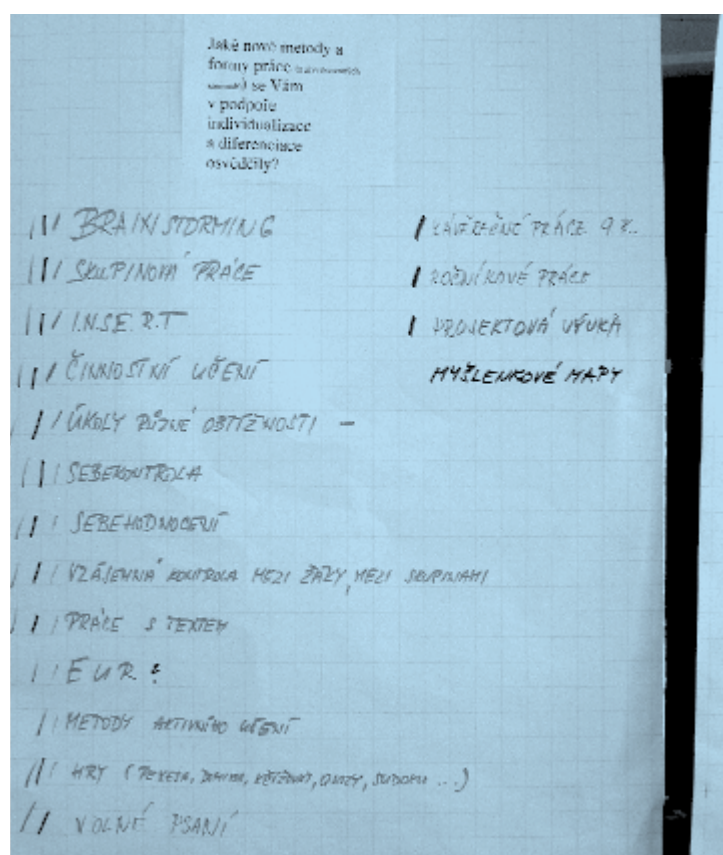 Jaké nové metody a
formy práce
se Vám
v podpoře
individualizace
a diferenciace
osvědčily?
||| BRAINSTORMING
||| SKUPINOVÁ PRÁCE
||| I.N.S.E.R.T
||| ČINNOSTNÍ UČENÍ
||| ÚKOLY RŮZNÉ OBTÍŽNOSTI –
||| SEBEKONTROLA
||| SEBEHODNOCENÍ
||| VZÁJEMNÁ KONTROLA MEZI ŽÁKY, MEZI SKUPINAMI
||| PRÁCE S TEXTEM
|| E U R ?
|| METODY AKTIVNÍHO UČENÍ
||| HRY (PEXESA, KŘÍŽOVKY, QUIZY, SUDOKU ...)
|| VOLNÉ PSANÍ
| ZÁVĚREČNÉ PRÁCE 9.
| ROČNÍKOVÉ PRÁCE
| PROJEKTOVÁ VÝUKA
MYŠLENKOVÉ MAPY